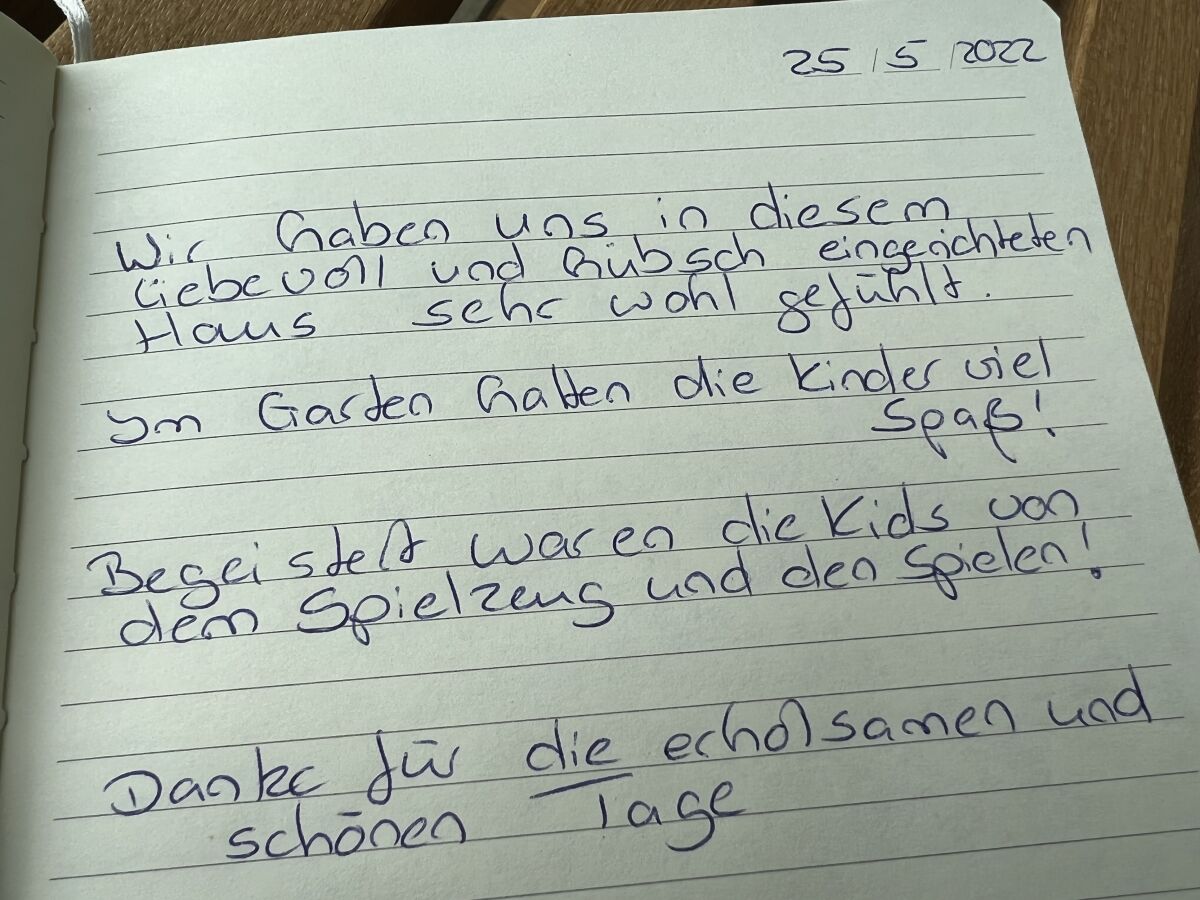 25/5/2022
Wir haben uns in diesem
liebevoll und hübsch eingerichteten
Haus sehr wohl gefühlt.
Im Garten hatten die Kinder viel
Spaß!
Begeistert waren die Kids von
dem Spielzeug und den Spielen!
Danke für die erholsamen und
schönen Tage